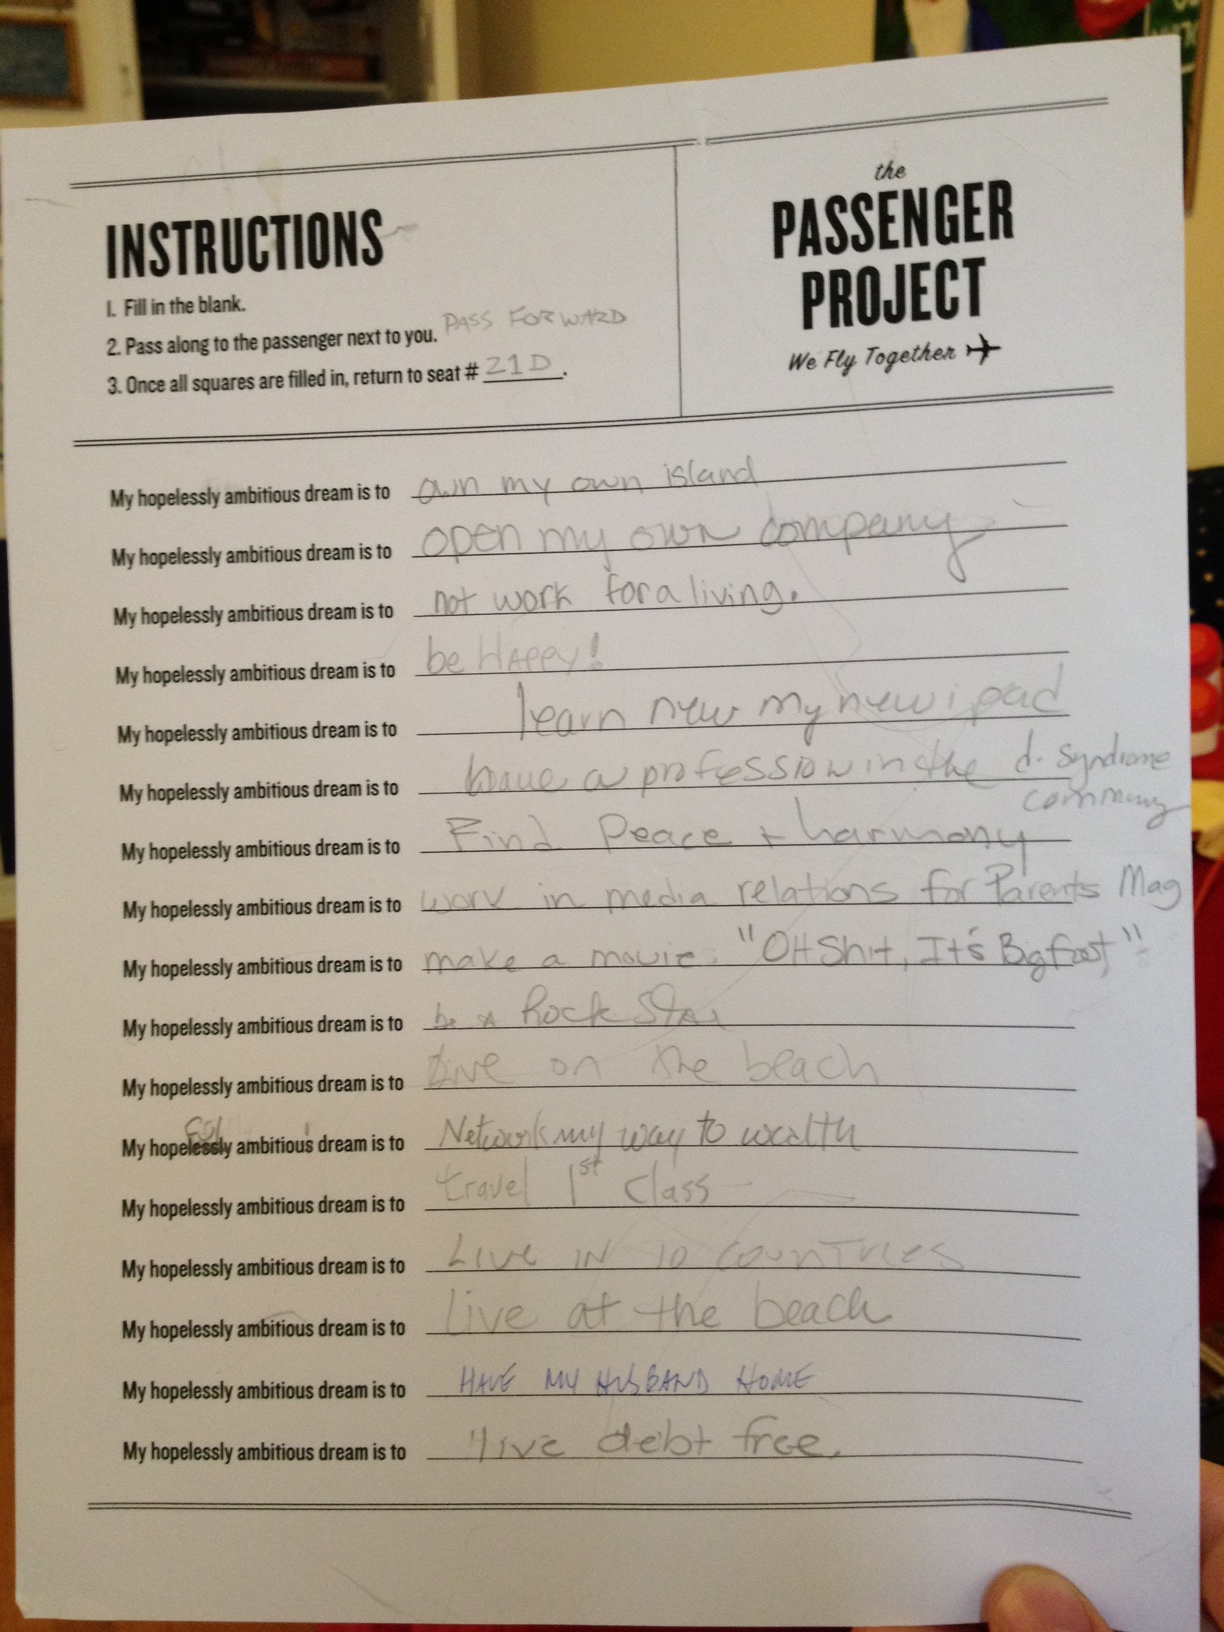 INSTRUCTIONS
1. Fill in the blank.
2. Pass along to the passenger next to you. PASS FORWARD
3. Once all squares are filled in, return to seat # 21D.
the
PASSENGER
PROJECT
We Fly Together
My hopelessly ambitious dream is to own my own island
My hopelessly ambitious dream is to open my own company
My hopelessly ambitious dream is to not work for a living.
My hopelessly ambitious dream is to be HAPPY!
My hopelessly ambitious dream is to learn new my new ipad
My hopelessly ambitious dream is to have a profession in the d. syndrome
community
My hopelessly ambitious dream is to Find Peace + harmony
My hopelessly ambitious dream is to work in media relations for Parents Mag
My hopelessly ambitious dream is to make a movie: "OH Shit, It's Bigfoot"
My hopelessly ambitious dream is to be A Rock Star
My hopelessly ambitious dream is to live on the beach
My hopelessly ambitious dream is to Network my way to wealth
My hopelessly ambitious dream is to travel 1st Class
My hopelessly ambitious dream is to LIVE IN 10 COUNTRIES
My hopelessly ambitious dream is to live at the beach
My hopelessly ambitious dream is to HAVE MY HUSBAND HOME
My hopelessly ambitious dream is to live debt free.